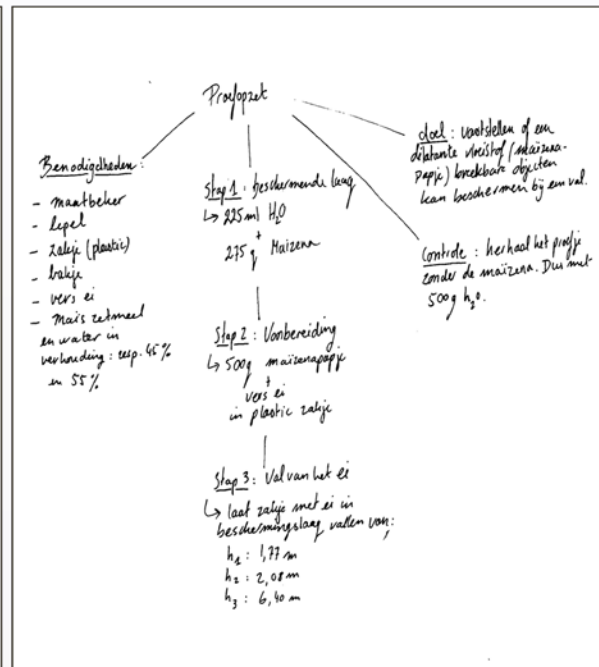 Proefopzet
Benodigdheden:
- maatbeker
- lepel
- zakje (plastic)
- bakje
- vers ei
- Mais zetmeel
en water in
verhouding: resp. 45%
en 55%
Stap 1: beschermende laag
↳ 225 ml H₂O
+
275 g Maizena
Stap 2: Voorbereiding
↳ 500g maïzenapapje
+
vers ei
in plastic zakje
Stap 3: Val van het ei
↳ laat zakje met ei in
beschermingslaag vallen van:
h₁: 1,77 m
h₂: 2,08 m
h₃: 6,40 m
doel: vaststellen of een
dilatante vloeistof (maïzena-
papje) breekbare objecten
kan beschermen bij een val.
Controle: herhaal het proefje
zonder de maïzena. Dus met
500g h₂o.